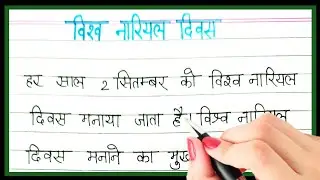 विश्व नारियल दिवस
हर साल 2 सितम्बर को विश्व नारियल
दिवस मनाया जाता है। विश्व नारियल
दिवस मनाने का मुख